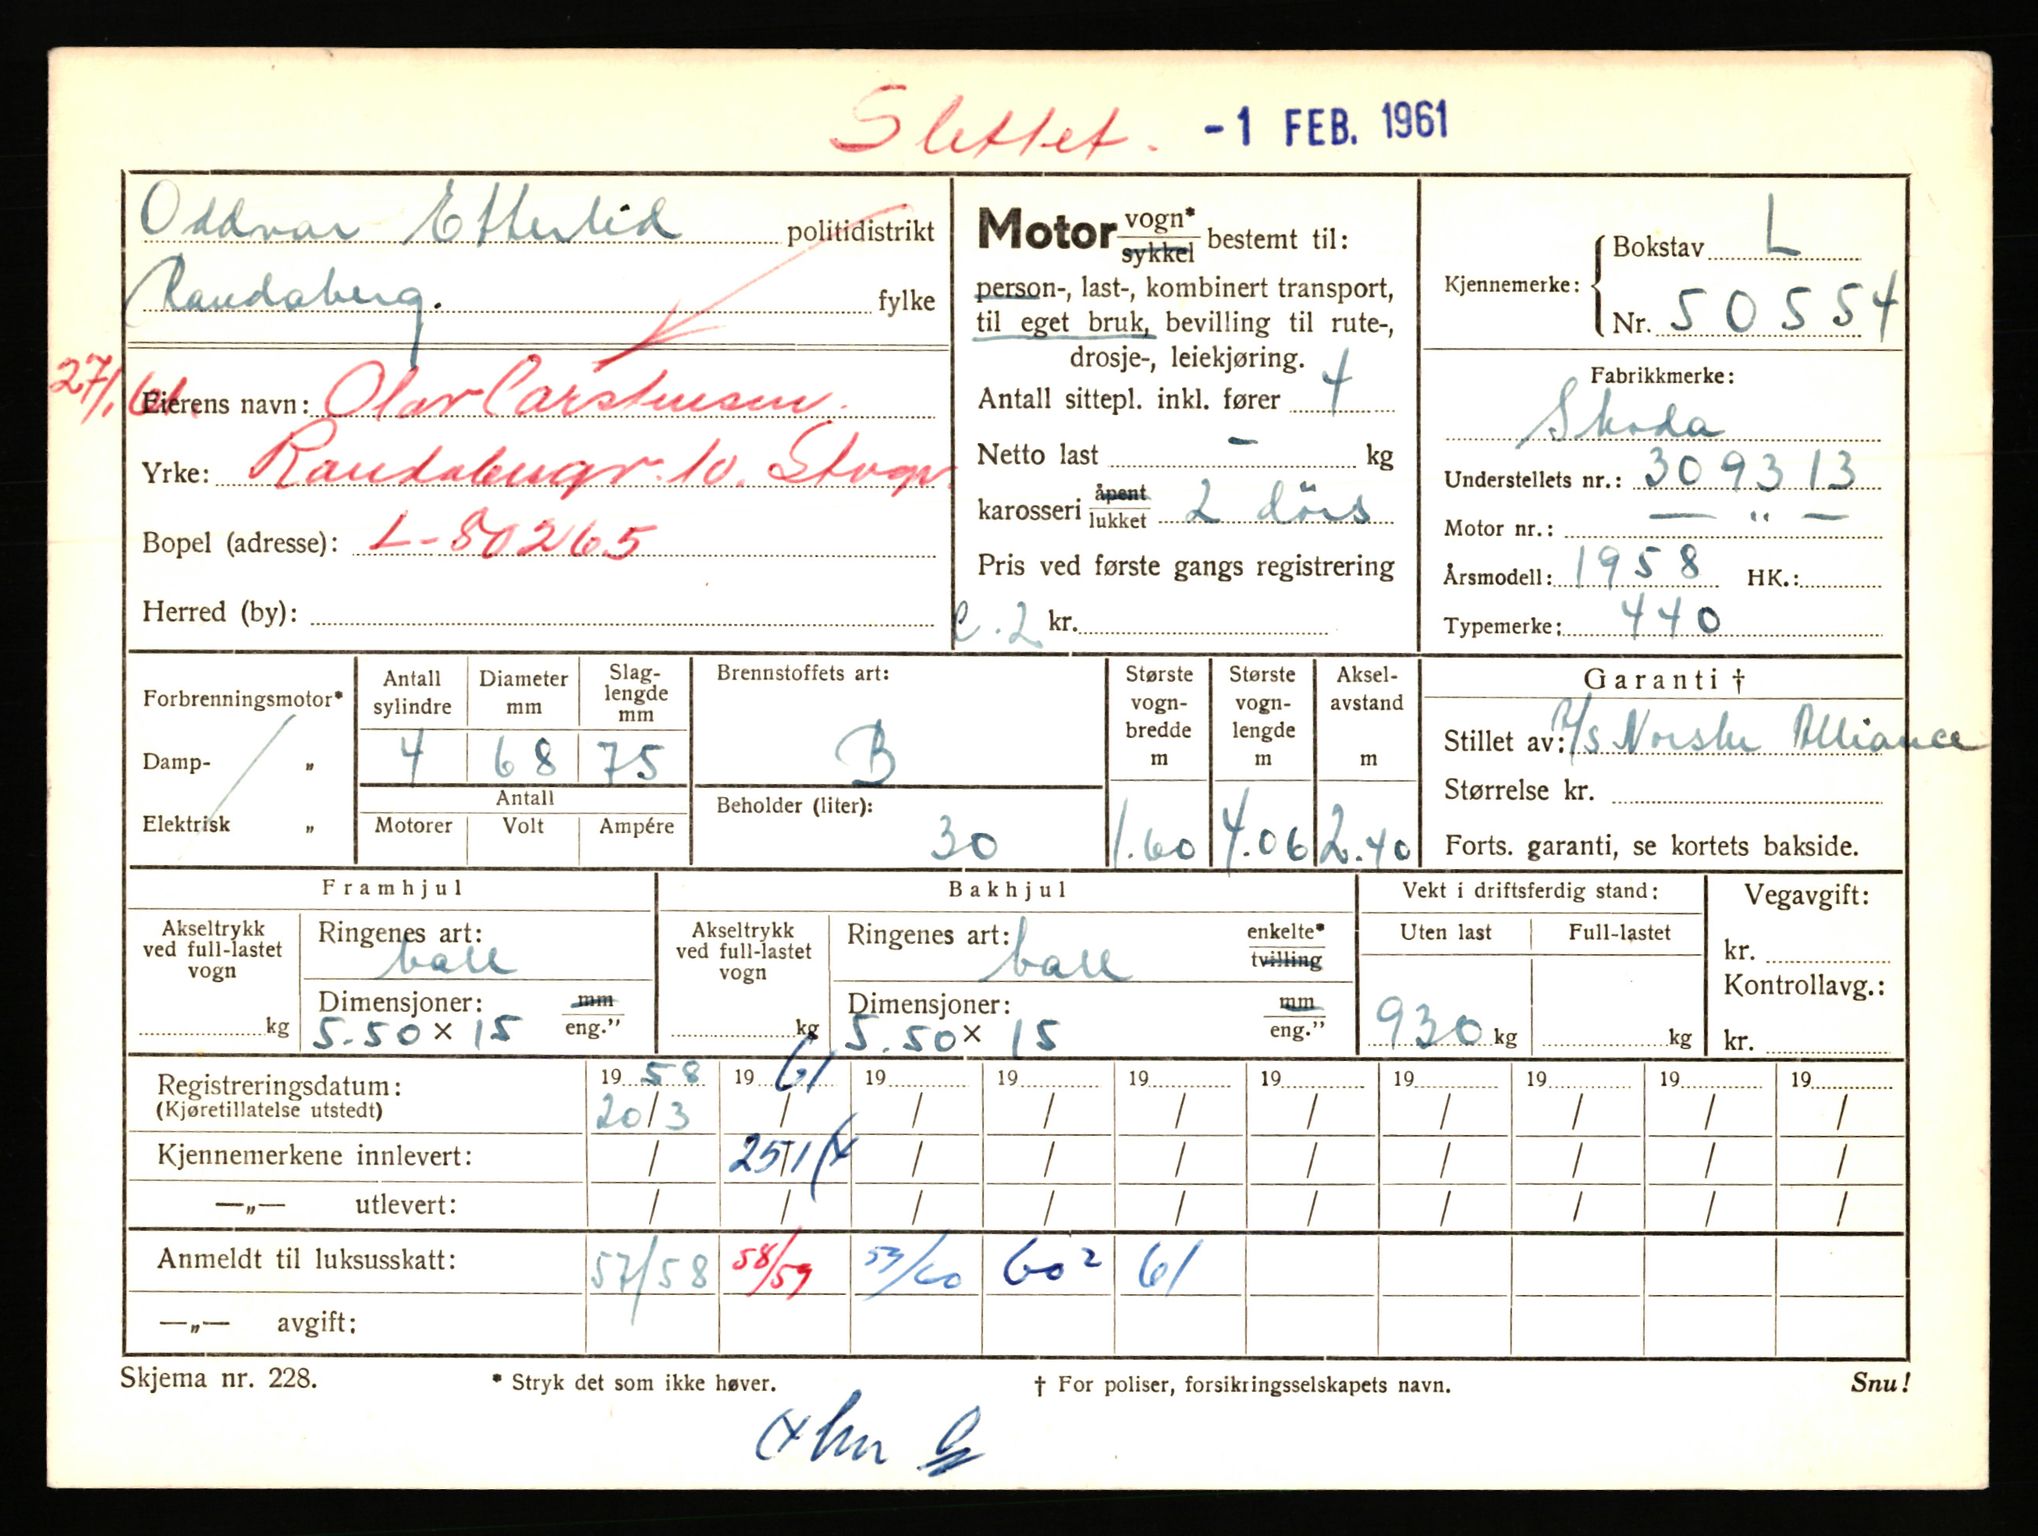 Slettet. -1 FEB. 1961
Oddvar Etterlid politidistrikt
Randaberg. fylke
27/1 61.
Eierens navn: Olav Carstensen.
Yrke: Randabergv. 10. Stvgr.
Bopel (adresse): L-80265
Herred (by):
Motor vogn*
sykkel bestemt til:
person-, last-, kombinert transport,
til eget bruk, bevilling til rute-,
drosje-, leiekjøring.
Antall sittepl. inkl. fører 4
Netto last - kg
karosseri åpent
lukket 2 dørs
Pris ved første gangs registrering
kr.
Kjennemerke: Bokstav L
Nr. 50554
Fabrikkmerke:
Skoda
Understellets nr.: 309313
Motor nr.: — " —
Årsmodell: 1958 HK.:
Typemerke: 440
Forbrenningsmotor*
Damp- „
Elektrisk „
Antall sylindre Diameter mm Slag-lengde mm
4 68 75
Antall
Motorer Volt Ampére
Brennstoffets art:
B
Beholder (liter):
30
Største vogn-bredde m
1.60
Største vogn-lengde m
4.06
Aksel-avstand m
2.40
Garanti †
Stillet av: A/S Norske Alliance
Størrelse kr.
Forts. garanti, se kortets bakside.
Framhjul
Akseltrykk
ved full-lastet
vogn
kg
Ringenes art:
ball
Dimensjoner: mm
5.50 x 15 eng."
Bakhjul
Akseltrykk
ved full-lastet
vogn
kg
Ringenes art: ball enkelte*
tvilling
Dimensjoner: mm
5.50 x 15 eng."
Vekt i driftsferdig stand:
Uten last Full-lastet
930 kg kg
Vegavgift:
kr.
Kontrollavg.:
kr.
Registreringsdatum: 19 58 19 61 19 19 19 19 19 19 19 19
(Kjøretillatelse utstedt) 20/3 / / / / / / / / /
Kjennemerkene innlevert: / 25/1 x / / / / / / / /
—„— utlevert: / / / / / / / / / /
Anmeldt til luksusskatt: 57/58 58/59 59/60 60² 61
—„— avgift:
Skjema nr. 228. * Stryk det som ikke høver. † For poliser, forsikringsselskapets navn. Snu!